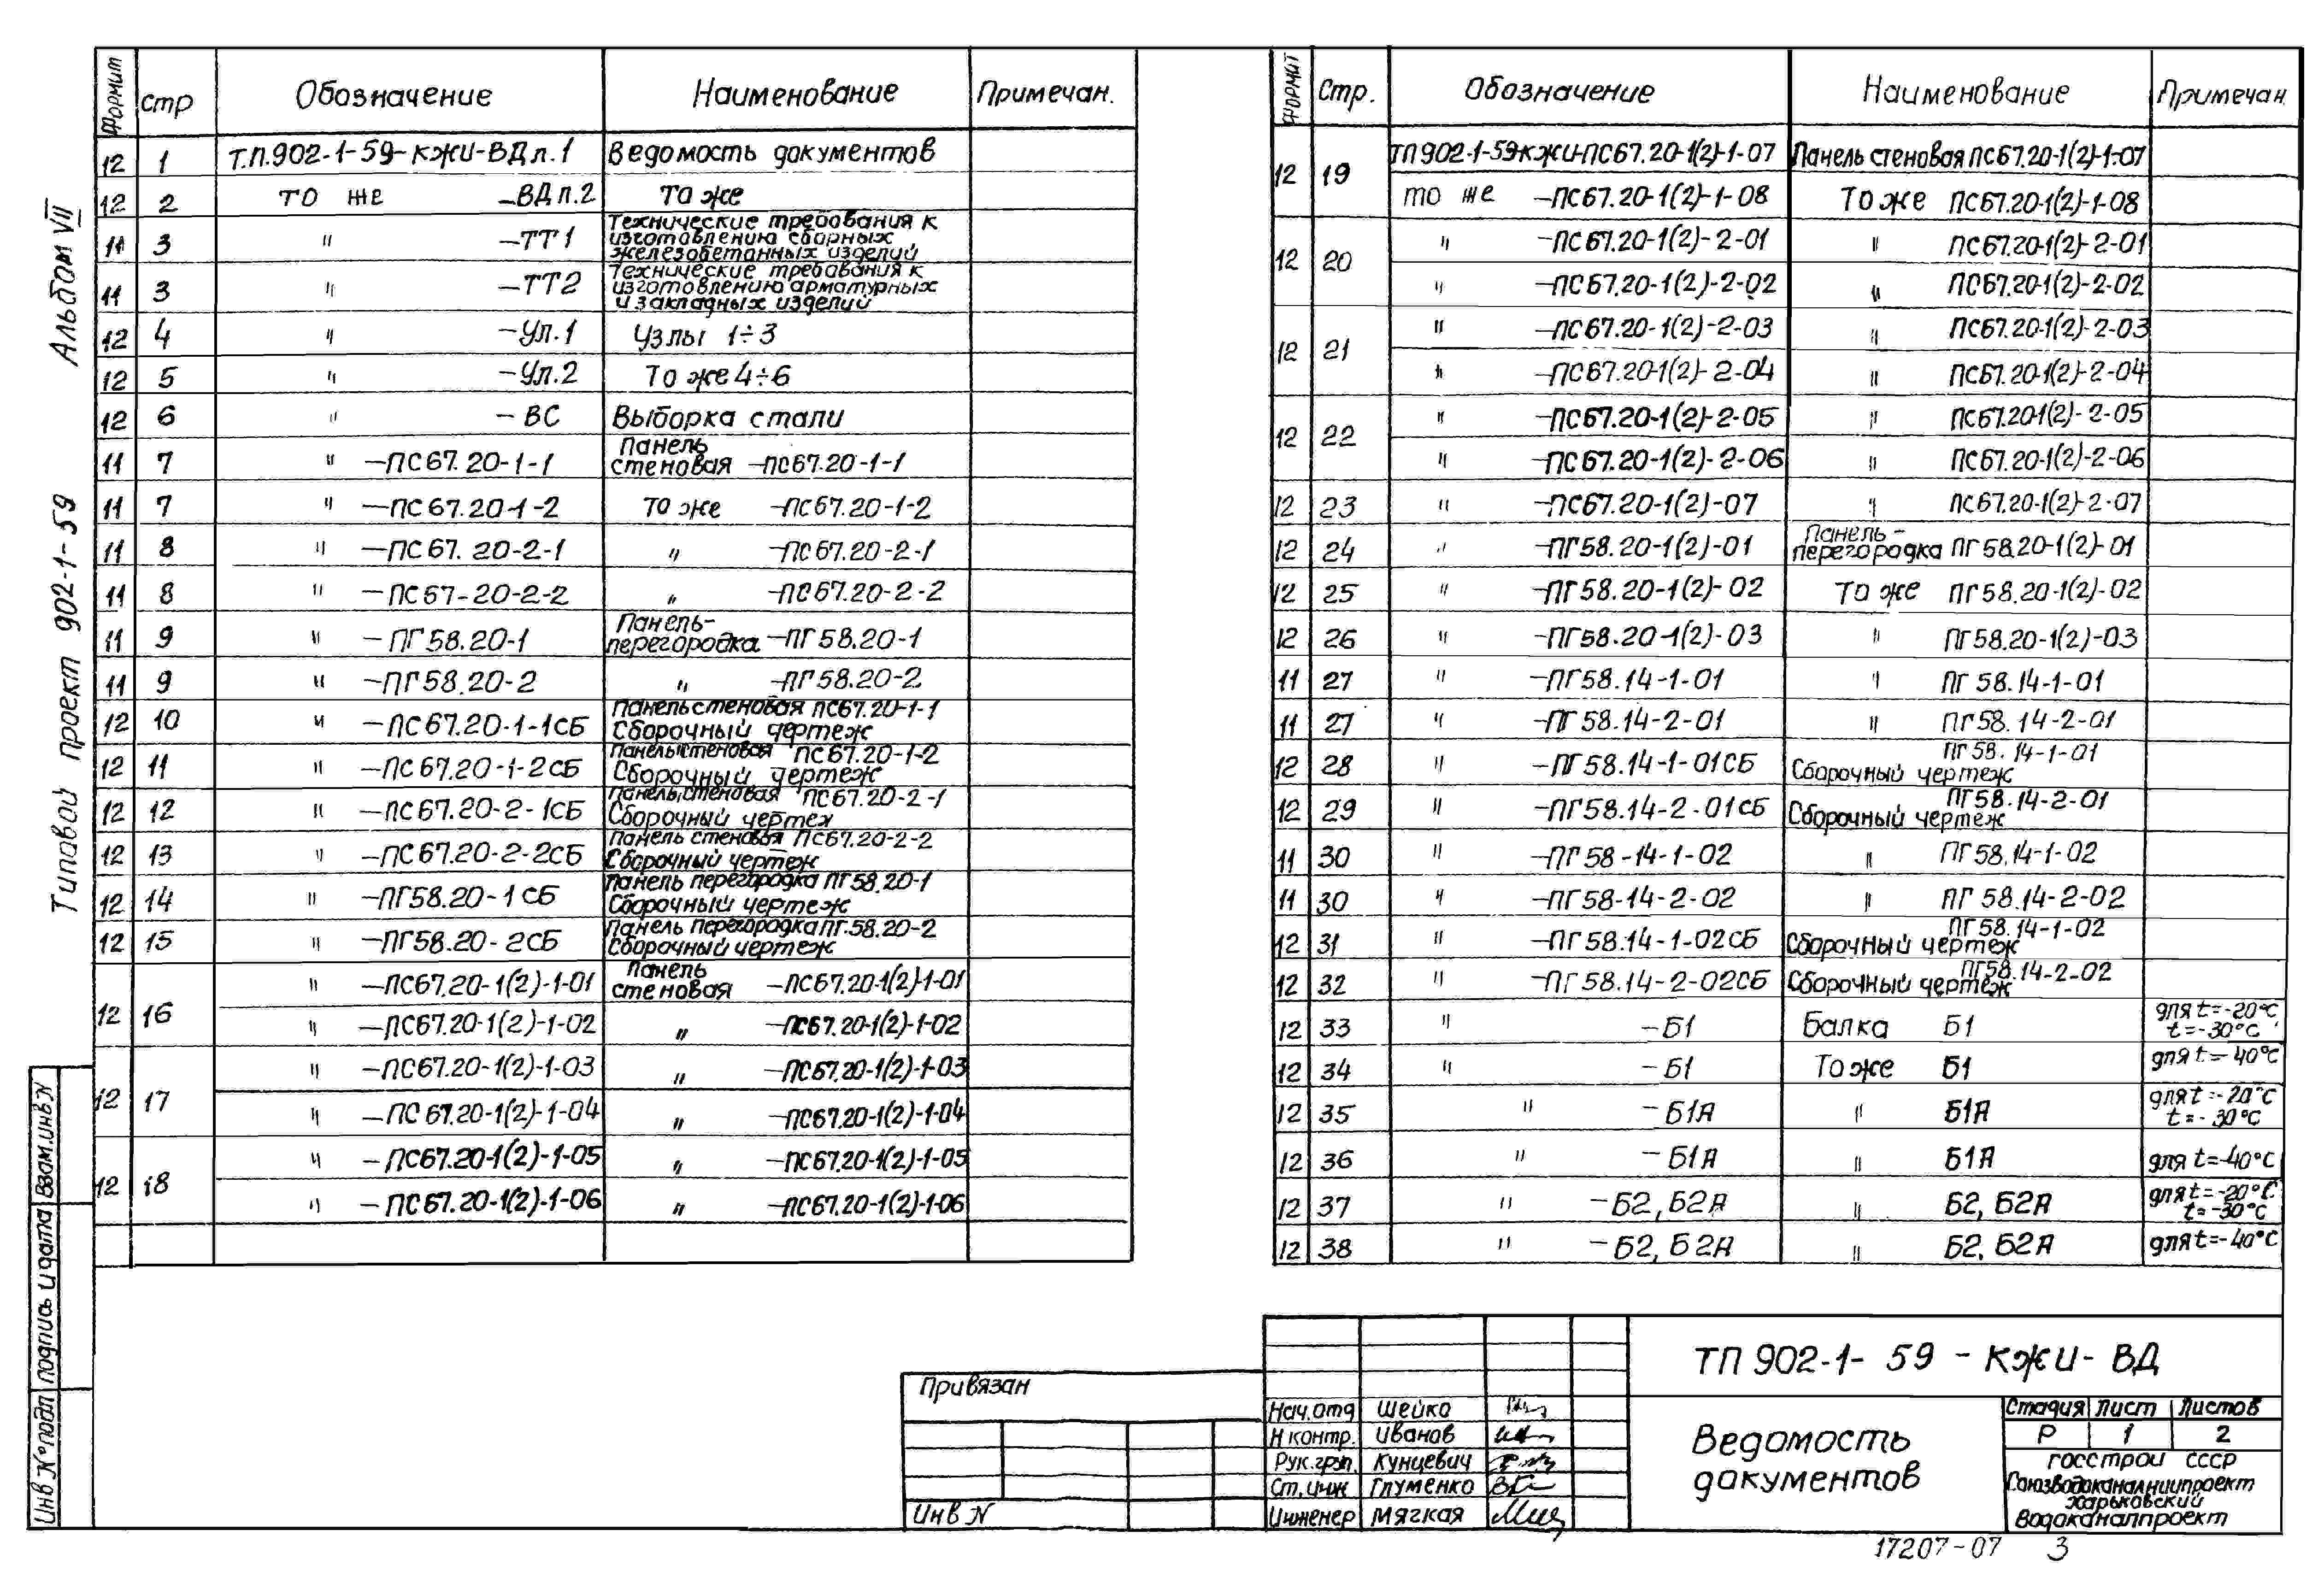 Типовой проект 902-1-59 Альбом VII
Формит стр Обозначение Наименование Примечан.
12 1 Т.П.902-1-59-КЖИ-ВДл.1 Ведомость документов
12 2 то же -ВДл.2 То же
11 3 " -ТТ1 Технические требования к
изготовлению сборных
железобетонных изделий
11 3 " -ТТ2 Технические требования к
изготовлению арматурных
и закладных изделий
12 4 " -Ул.1 Узлы 1÷3
12 5 " -Ул.2 То же 4÷6
12 6 " -ВС Выборка стали
11 7 " -ПС67.20-1-1 Панель
стеновая -ПС67.20-1-1
11 7 " -ПС67.20-1-2 то же -ПС67.20-1-2
11 8 " -ПС67.20-2-1 " -ПС67.20-2-1
11 8 " -ПС67-20-2-2 " -ПС67.20-2-2
11 9 " -ПГ58.20-1 Панель-
перегородка -ПГ58.20-1
11 9 " -ПГ58.20-2 " -ПГ58.20-2
12 10 " -ПС67.20-1-1СБ Панель стеновая ПС67.20-1-1
Сборочный чертеж
12 11 " -ПС67.20-1-2СБ Панель стеновая ПС67.20-1-2
Сборочный чертеж
12 12 " -ПС67.20-2-1СБ Панель стеновая ПС67.20-2-1
Сборочный чертеж
12 13 " -ПС67.20-2-2СБ Панель стеновая ПС67.20-2-2
Сборочный чертеж
12 14 " -ПГ58.20-1СБ Панель перегородка ПГ58.20-1
Сборочный чертеж
12 15 " -ПГ58.20-2СБ Панель перегородка ПГ.58.20-2
Сборочный чертеж
12 16 " -ПС67.20-1(2)-1-01 Панель
стеновая -ПС67.20-1(2)-1-01
" -ПС67.20-1(2)-1-02 " -ПС67.20-1(2)-1-02
12 17 " -ПС67.20-1(2)-1-03 " -ПС67.20-1(2)-1-03
" -ПС67.20-1(2)-1-04 " -ПС67.20-1(2)-1-04
12 18 " -ПС67.20-1(2)-1-05 " -ПС67.20-1(2)-1-05
" -ПС67.20-1(2)-1-06 " -ПС67.20-1(2)-1-06
Формат Стр. Обозначение Наименование Примечан
12 19 ТП902-1-59КЖИ-ПС67.20-1(2)-1-07 Панель стеновая ПС67.20-1(2)-1-07
то же -ПС67.20-1(2)-1-08 То же ПС67.20-1(2)-1-08
12 20 " -ПС67.20-1(2)-2-01 " ПС67.20-1(2)-2-01
" -ПС67.20-1(2)-2-02 " ПС67.20-1(2)-2-02
12 21 " -ПС67.20-1(2)-2-03 " ПС67.20-1(2)-2-03
" -ПС67.20-1(2)-2-04 " ПС67.20-1(2)-2-04
12 22 " -ПС67.20-1(2)-2-05 " ПС67.20-1(2)-2-05
" -ПС67.20-1(2)-2-06 " ПС67.20-1(2)-2-06
12 23 " -ПС67.20-1(2)-07 " ПС67.20-1(2)-2-07
12 24 " -ПГ58.20-1(2)-01 Панель-
перегородка ПГ58.20-1(2)-01
12 25 " -ПГ58.20-1(2)-02 То же ПГ58.20-1(2)-02
12 26 " -ПГ58.20-1(2)-03 " ПГ58.20-1(2)-03
11 27 " -ПГ58.14-1-01 " ПГ58.14-1-01
11 27 " -ПГ58.14-2-01 " ПГ58.14-2-01
12 28 " -ПГ58.14-1-01СБ ПГ58.14-1-01
Сборочный чертеж
12 29 " -ПГ58.14-2-01СБ ПГ58.14-2-01
Сборочный чертеж
11 30 " -ПГ58-14-1-02 " ПГ58.14-1-02
11 30 " -ПГ58-14-2-02 " ПГ58.14-2-02
12 31 " -ПГ58.14-1-02СБ ПГ58.14-1-02
Сборочный чертеж
12 32 " -ПГ58.14-2-02СБ ПГ58.14-2-02
Сборочный чертеж
12 33 " -Б1 Балка Б1 для t=-20°С
t=-30°С
12 34 " -Б1 То же Б1 для t=-40°С
12 35 " -Б1А " Б1А для t=-20°С
t=-30°С
12 36 " -Б1А " Б1А для t=-40°С
12 37 " -Б2, Б2А " Б2, Б2А для t=-20°С
t=-30°С
12 38 " -Б2, Б2А " Б2, Б2А для t=-40°С
Инв N°подл подпись и дата Взам.инв N
Привязан
Инв N
Нач.отд Шейко
Н контр. Иванов
Рук.груп. Кунцевич
Ст.инж Глуменко
Инженер Мягкая
ТП 902-1-59-КЖИ-ВД
Ведомость
документов
Стадия Лист Листов
Р 1 2
Госстрой СССР
Союзводоканалниипроект
Харьковский
Водоканалпроект
17207-07 3